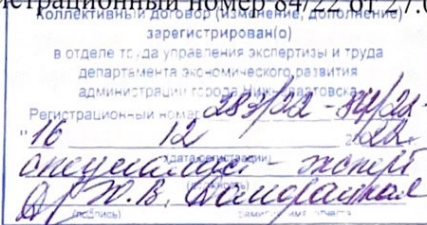 страционный номер 84/22 от 27.0
Коллективный договор (изменение, дополнение)
зарегистрирован(о)
в отделе труда управления экспертизы и труда
департамента экономического развития
администрации города Нижневартовска
Регистрационный номер 283/22 - 84/22 -
"16 12 2022г.
(дата регистрации)
специалист - эксперт
Ю.В.
(подпись) фамилия имя отчество